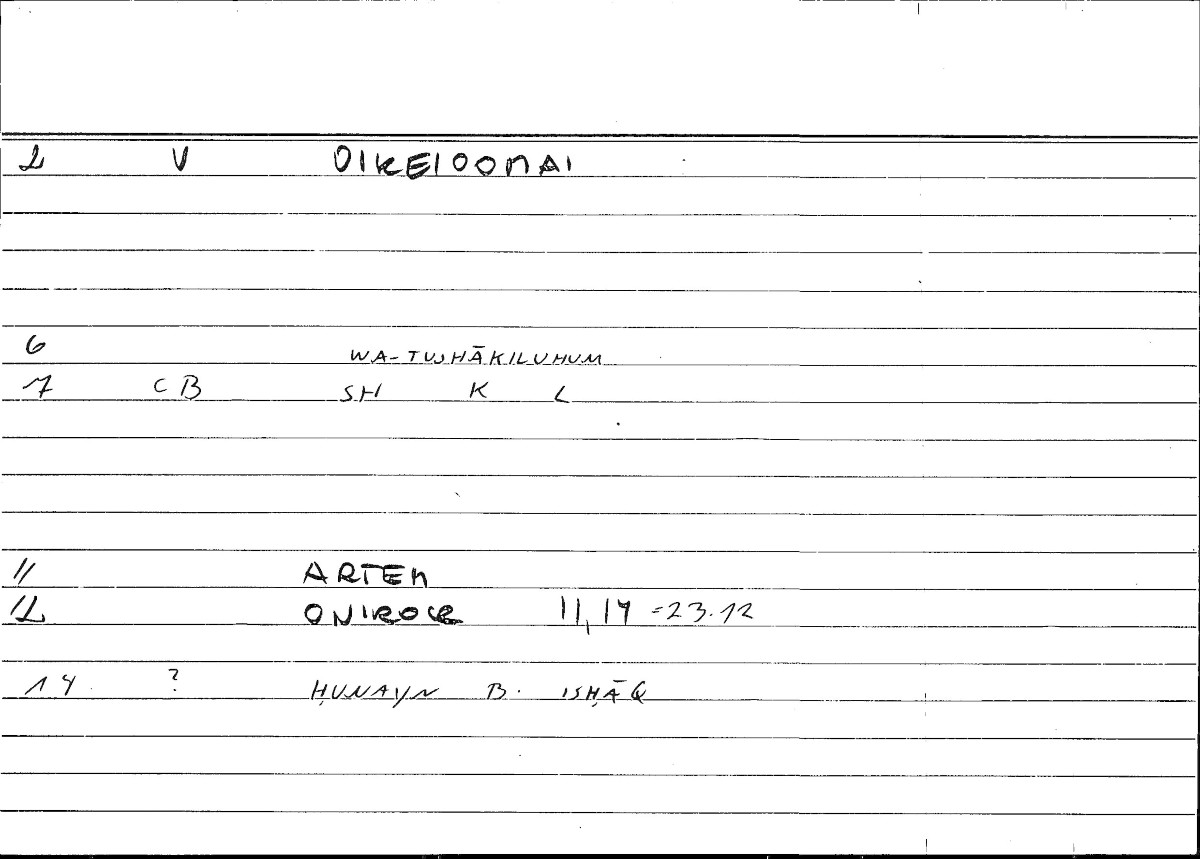 2 V OIKEIOOMAI
6 WA-TUSHĀKILUHUM
7 CB SH K L
11 ARTEM
12 ONIROCR 11,14 =23.12
14 ? ḤUNAYN B. ISḤĀQ